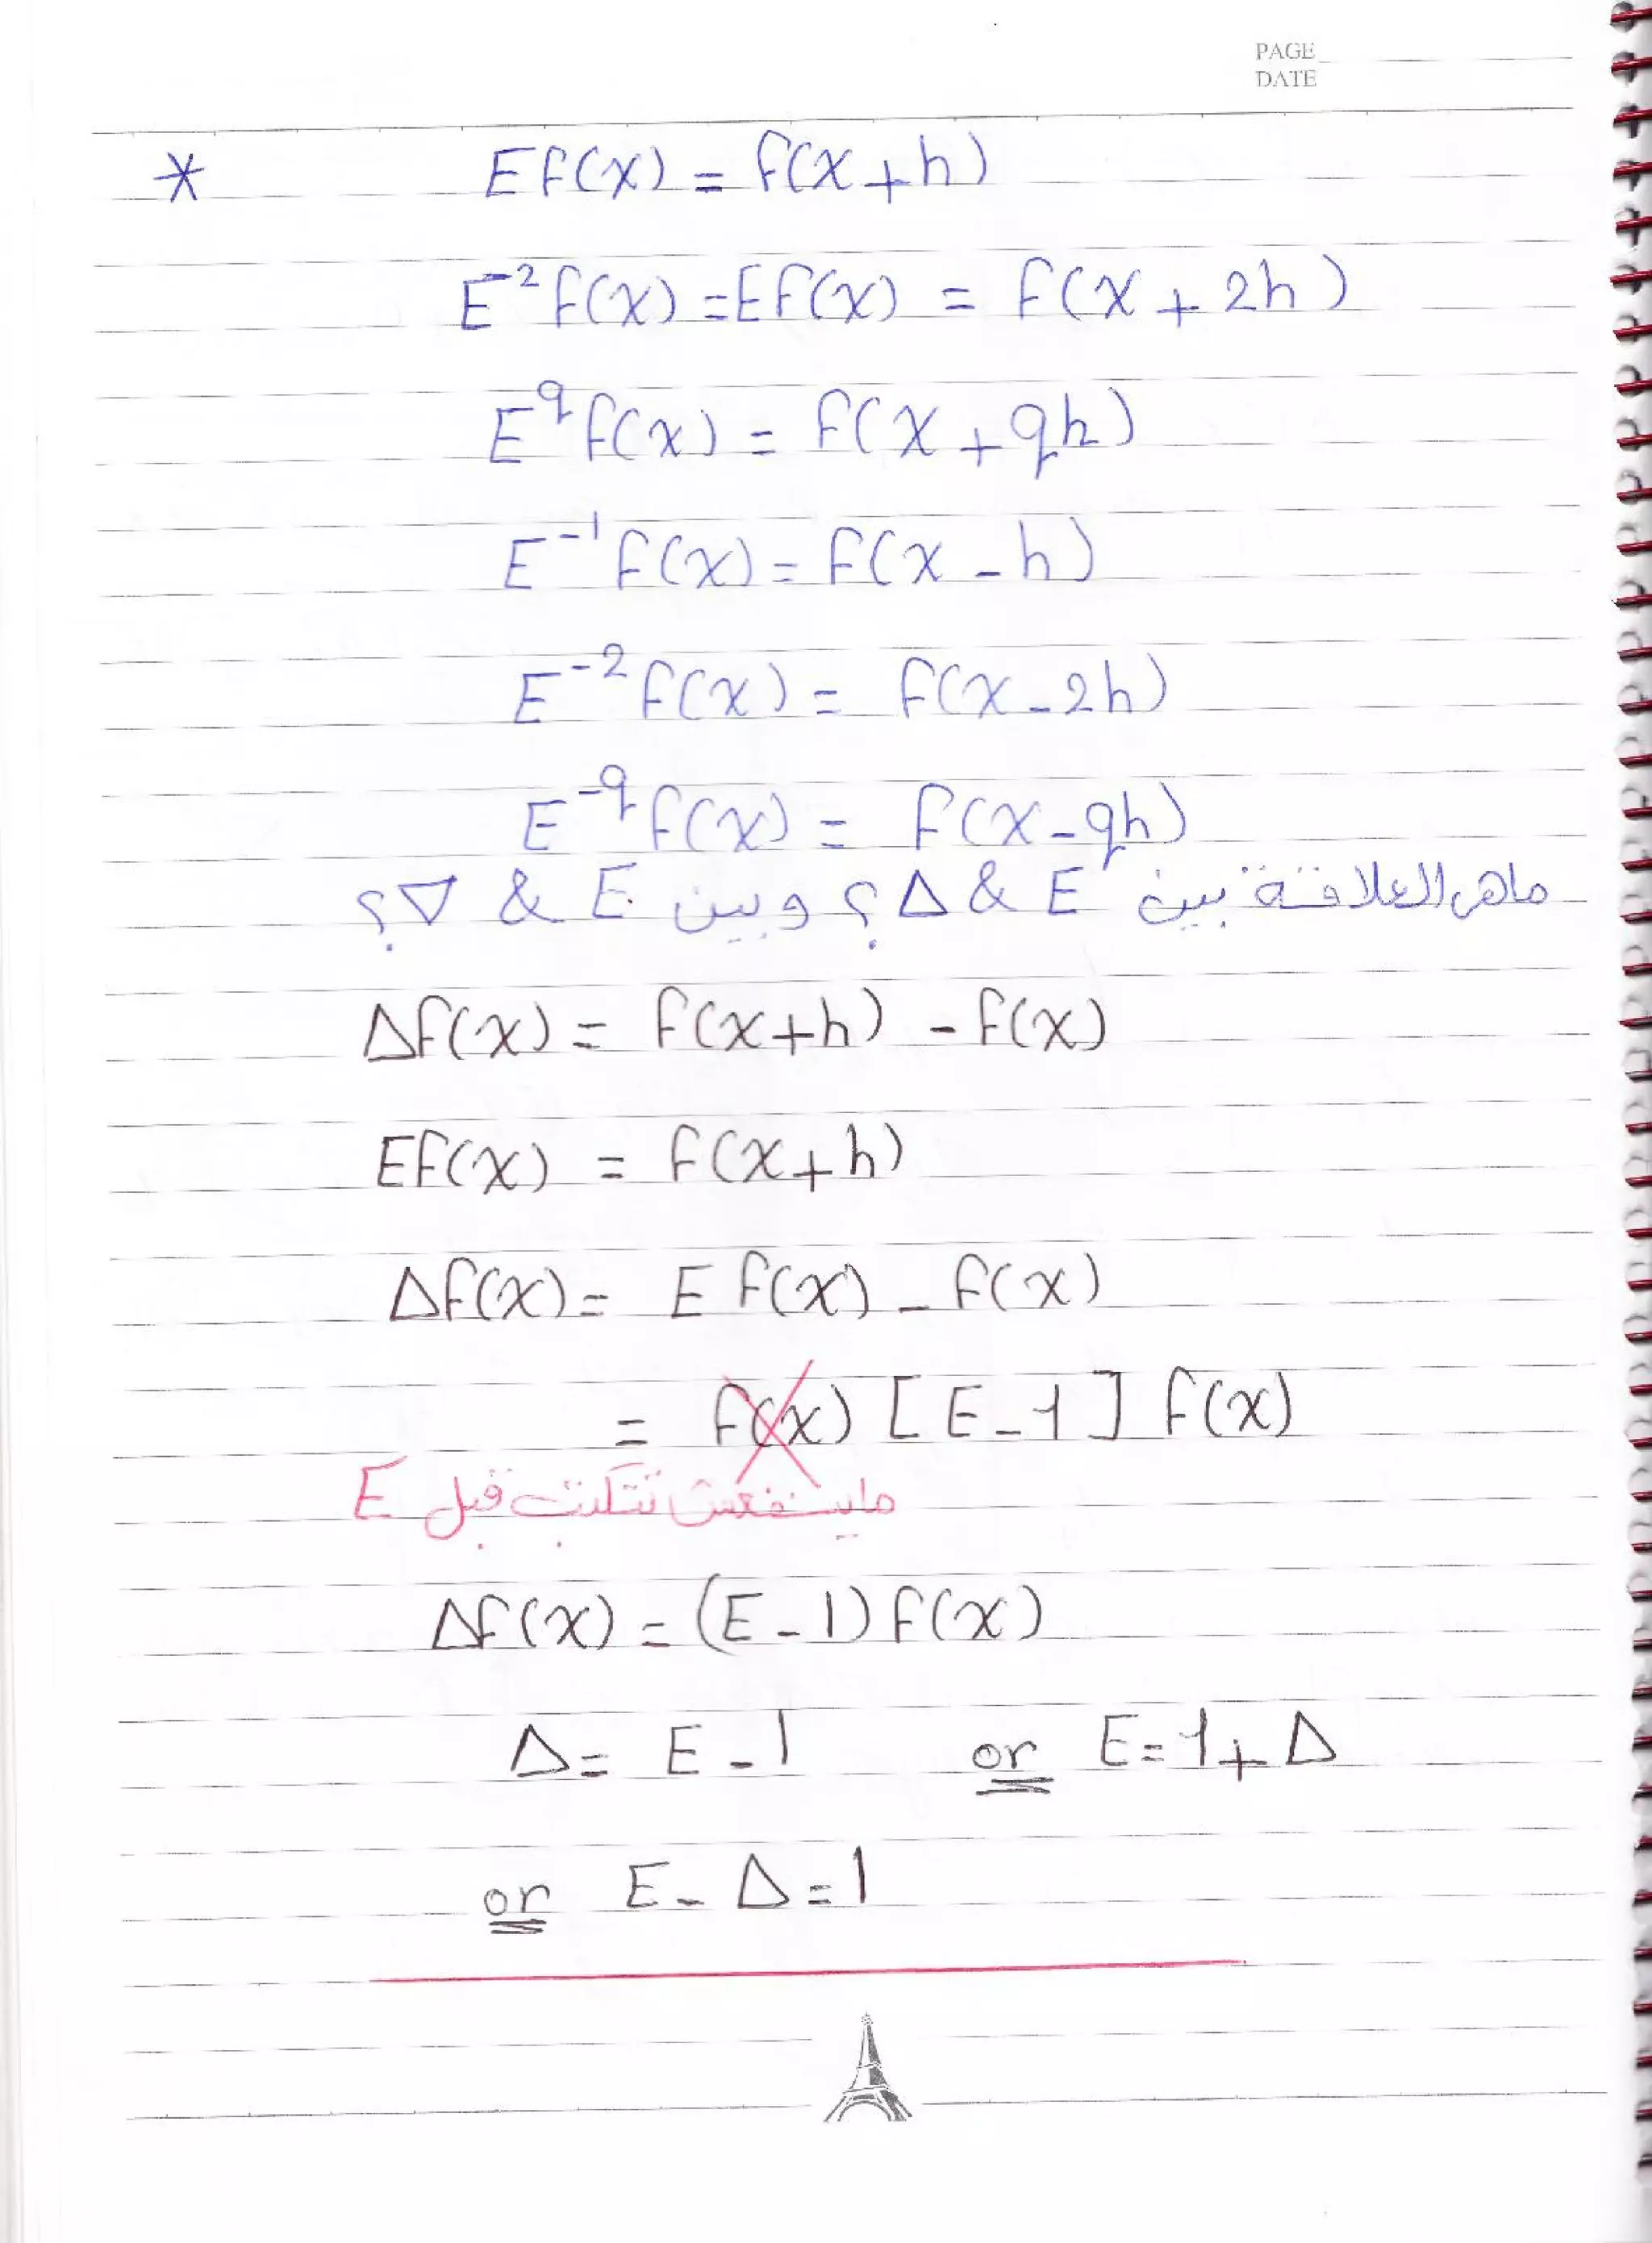 PAGE
DATE
* Ef(x) = f(x+h)
E² f(x) = Ef(x) = f(x + 2h)
E^q f(x) = f(x + qh)
E⁻¹ f(x) = f(x - h)
E⁻² f(x) = f(x - 2h)
E^-q f(x) = f(x - qh)
ماهى العلاقة بين E & Δ ؟ وبين E & ∇ ؟
Δf(x) = f(x+h) - f(x)
Ef(x) = f(x+h)
Δf(x) = E f(x) - f(x)
= f(x) [E - 1] f(x)
ماينفعش تتكتب قبل E
Δf(x) = (E - 1) f(x)
Δ = E - 1 or E = 1 + Δ
or E - Δ = 1